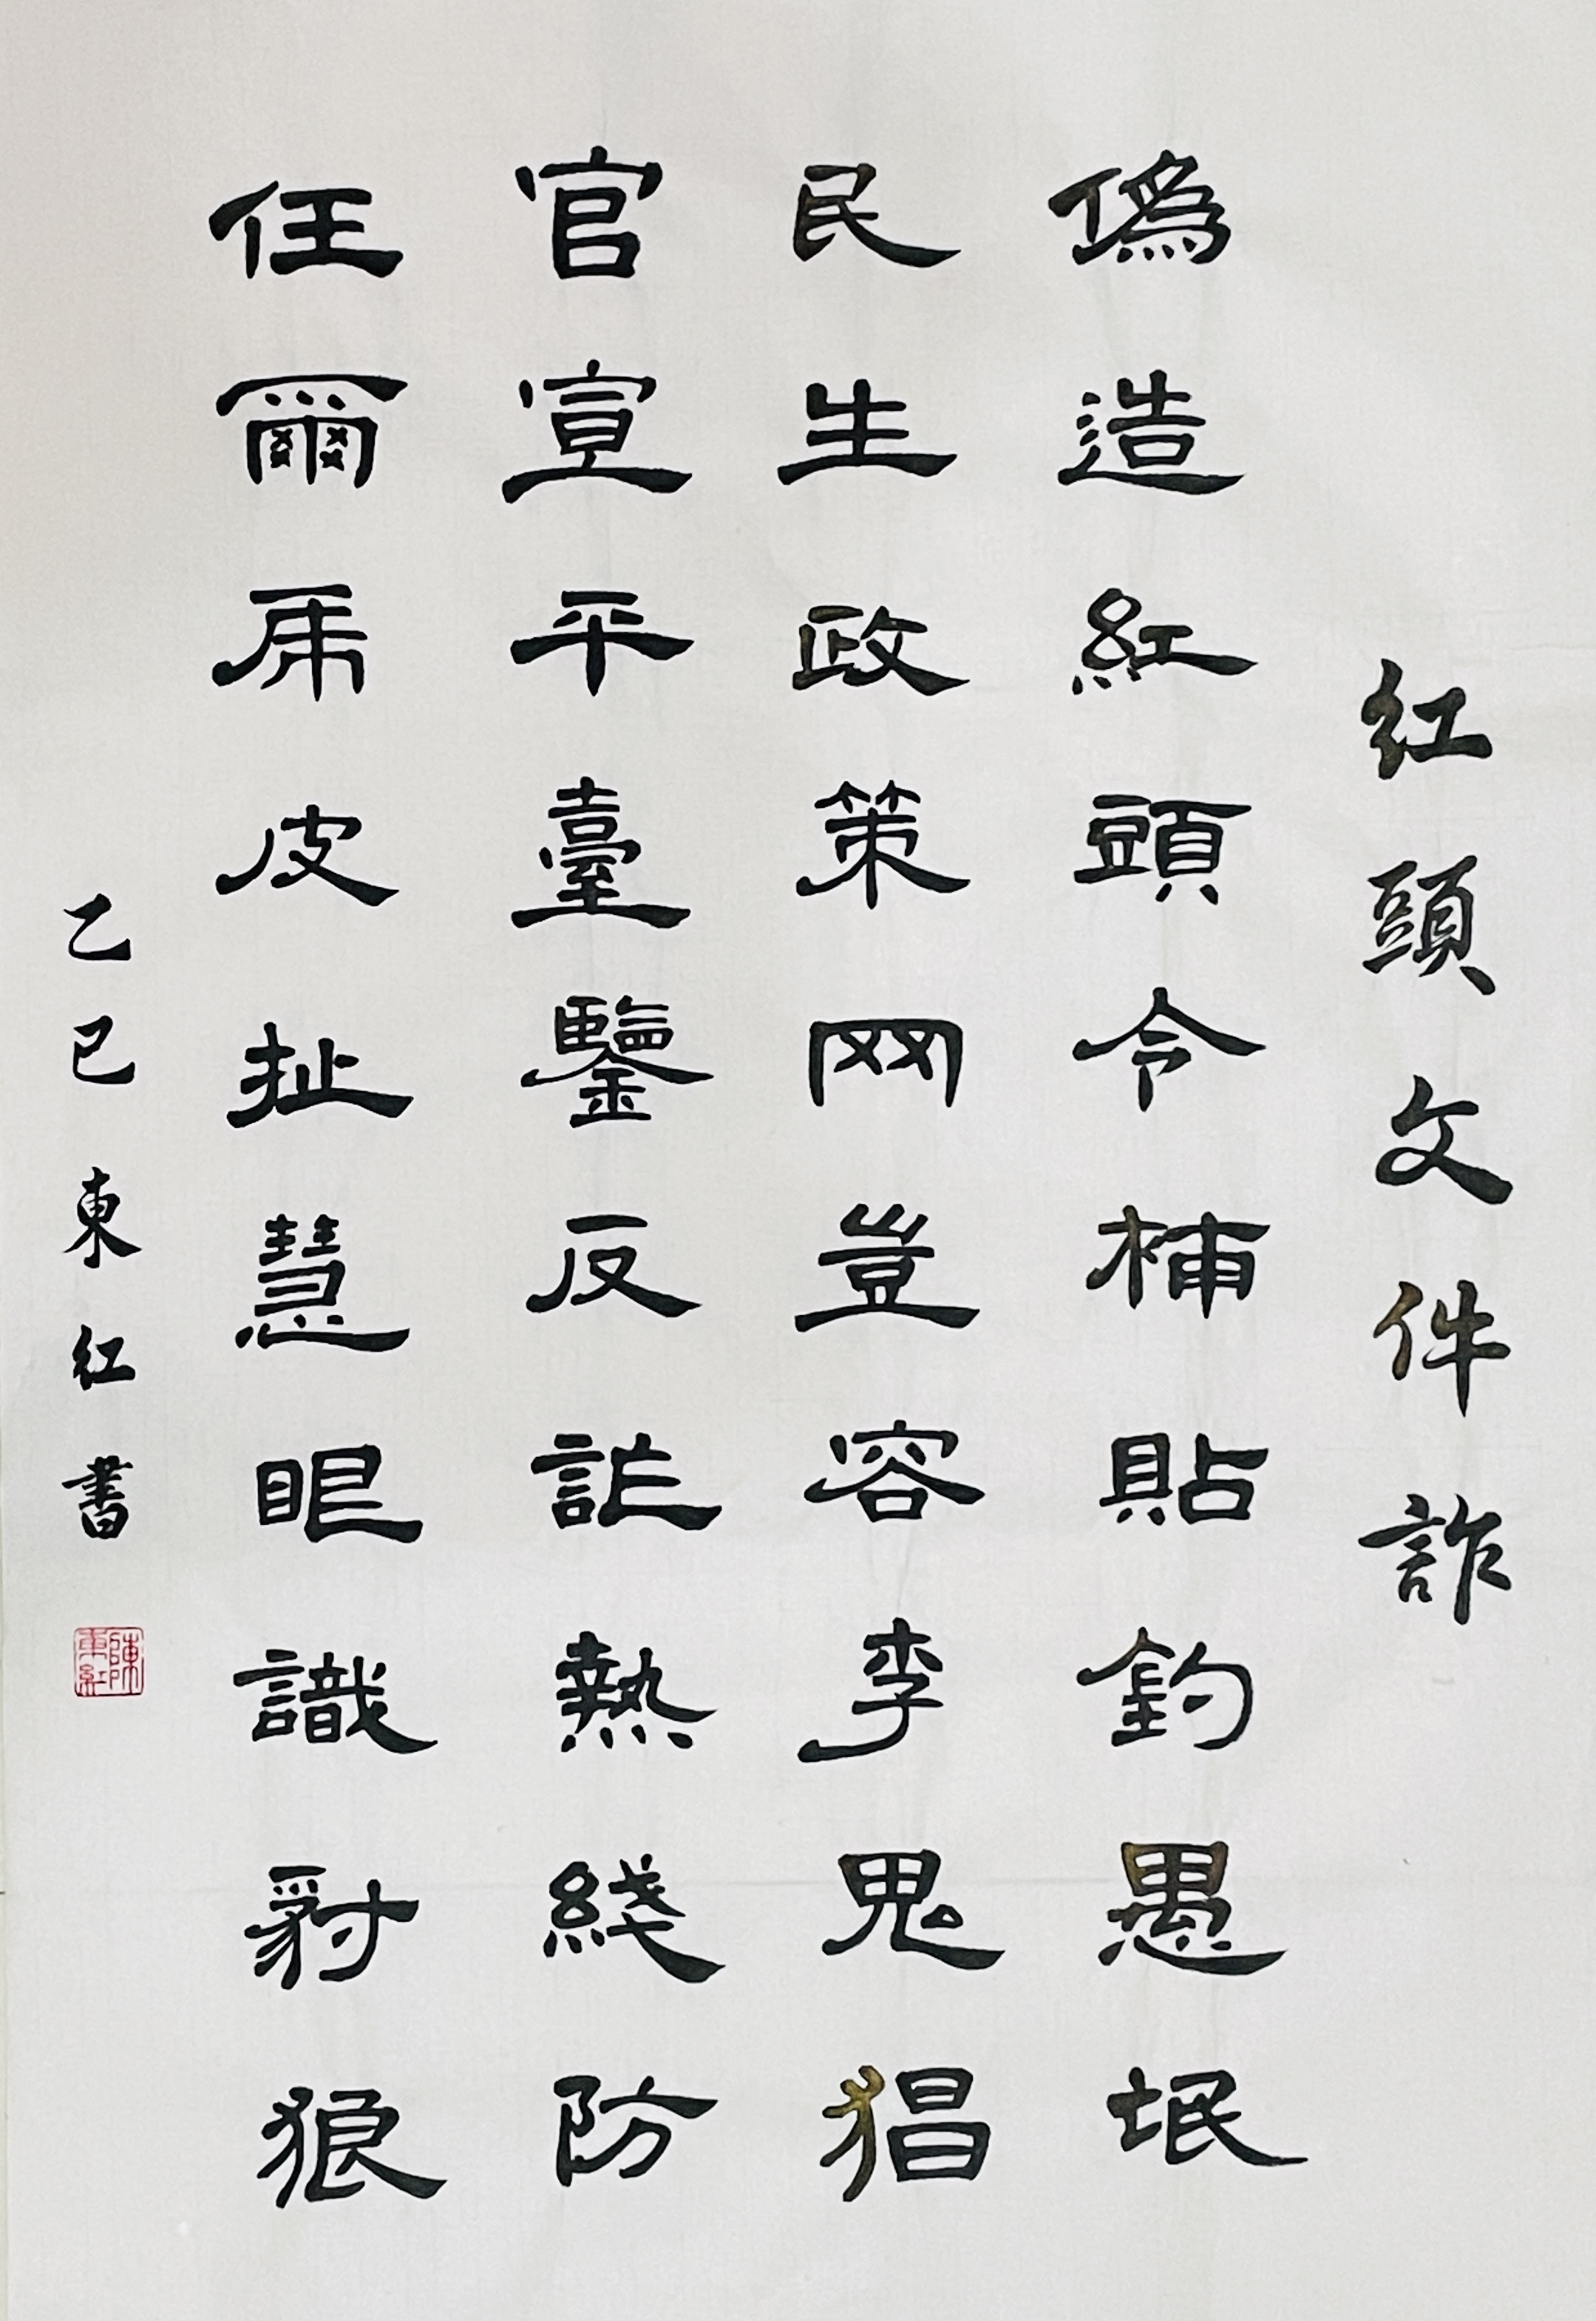 红頭文件詐
僞造紅頭令補貼釣愚氓
民生政策网豈容李鬼猖
官宣平臺鑒反詐熱綫防
任爾虎皮扯慧眼識豺狼
乙巳東红書
陳東紅